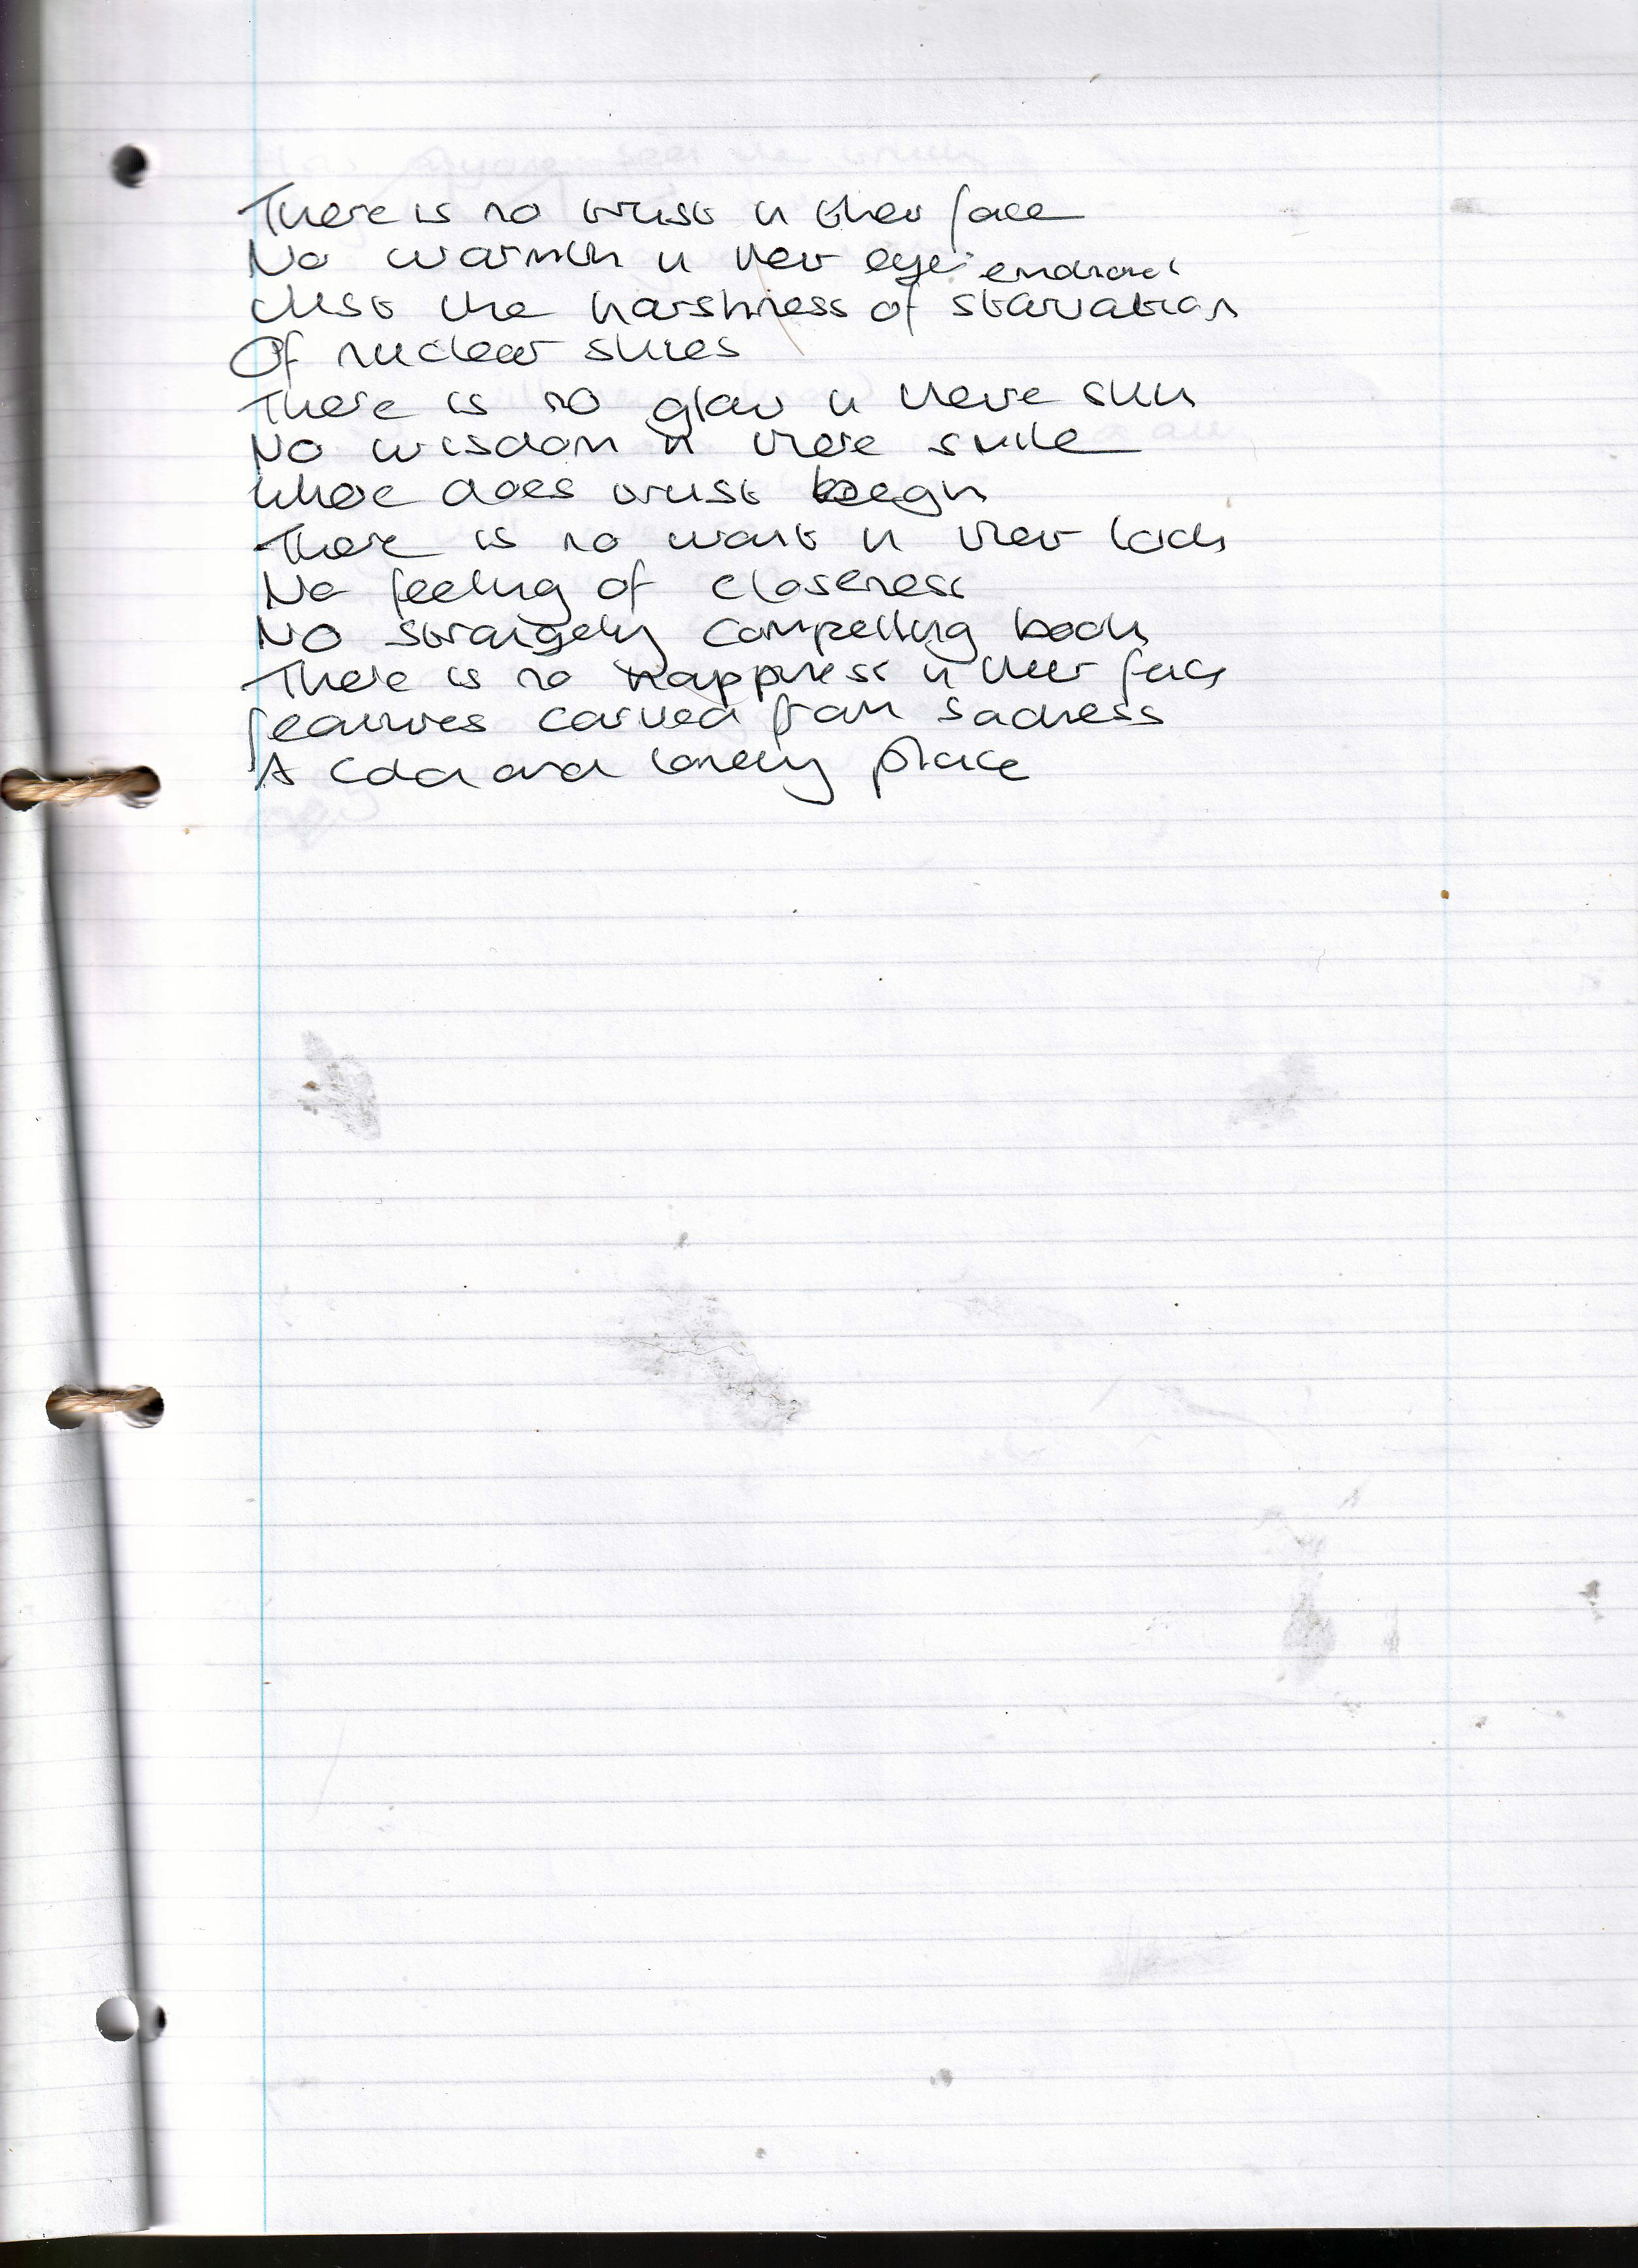 There is no trust in their face
No warmth in their eyes
Just the harshness of starvation
Of nuclear skies
There is no glow in there skin
No wisdom in there smile
Where does trust begin
There is no want in their looks
No feeling of closeness
No strangely compelling book
There is no happiness in their face
features carved from sadness
A cold and lonely place